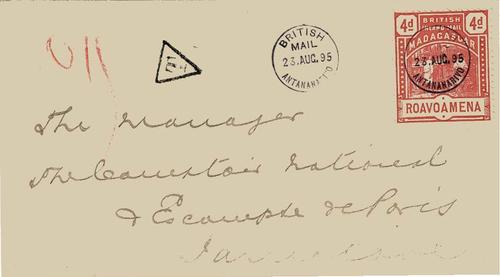 4d BRITISH INLAND MAIL 4d
MADAGASCAR
BRITISH
MAIL
23.AUG.95
ANTANANARIVO
23.AUG.95
ANTANANARIVO
ROAVOAMENA
The Manager
The Comptoir National
d'Escompte de Paris